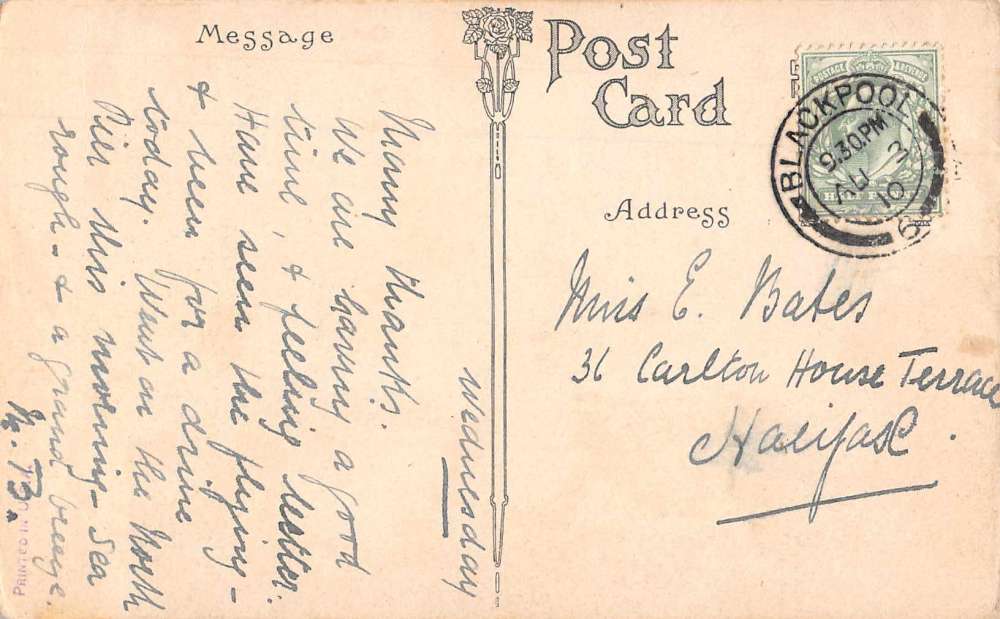 Message
Post
Card
Address
BLACKPOOL
9.30PM
AU 3
10
6
Wednesday
Many thanks.
We are having a good
time, & feeling better.
Have seen the flying -
& been for a drive
today. Went on the North
Pier this morning - Sea
rough - & a grand breeze.
Miss E. Bates
36 Carlton House Terrace
Halifax.
PRINTED IN